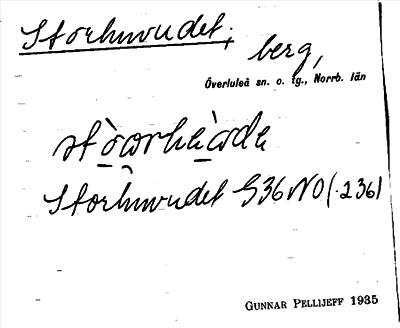 Storhuvudet,
berg,
Överluleå sn. o. tg., Norrb. län
Storhuvudet G36NO(.236)
GUNNAR PELLIJEFF 1935